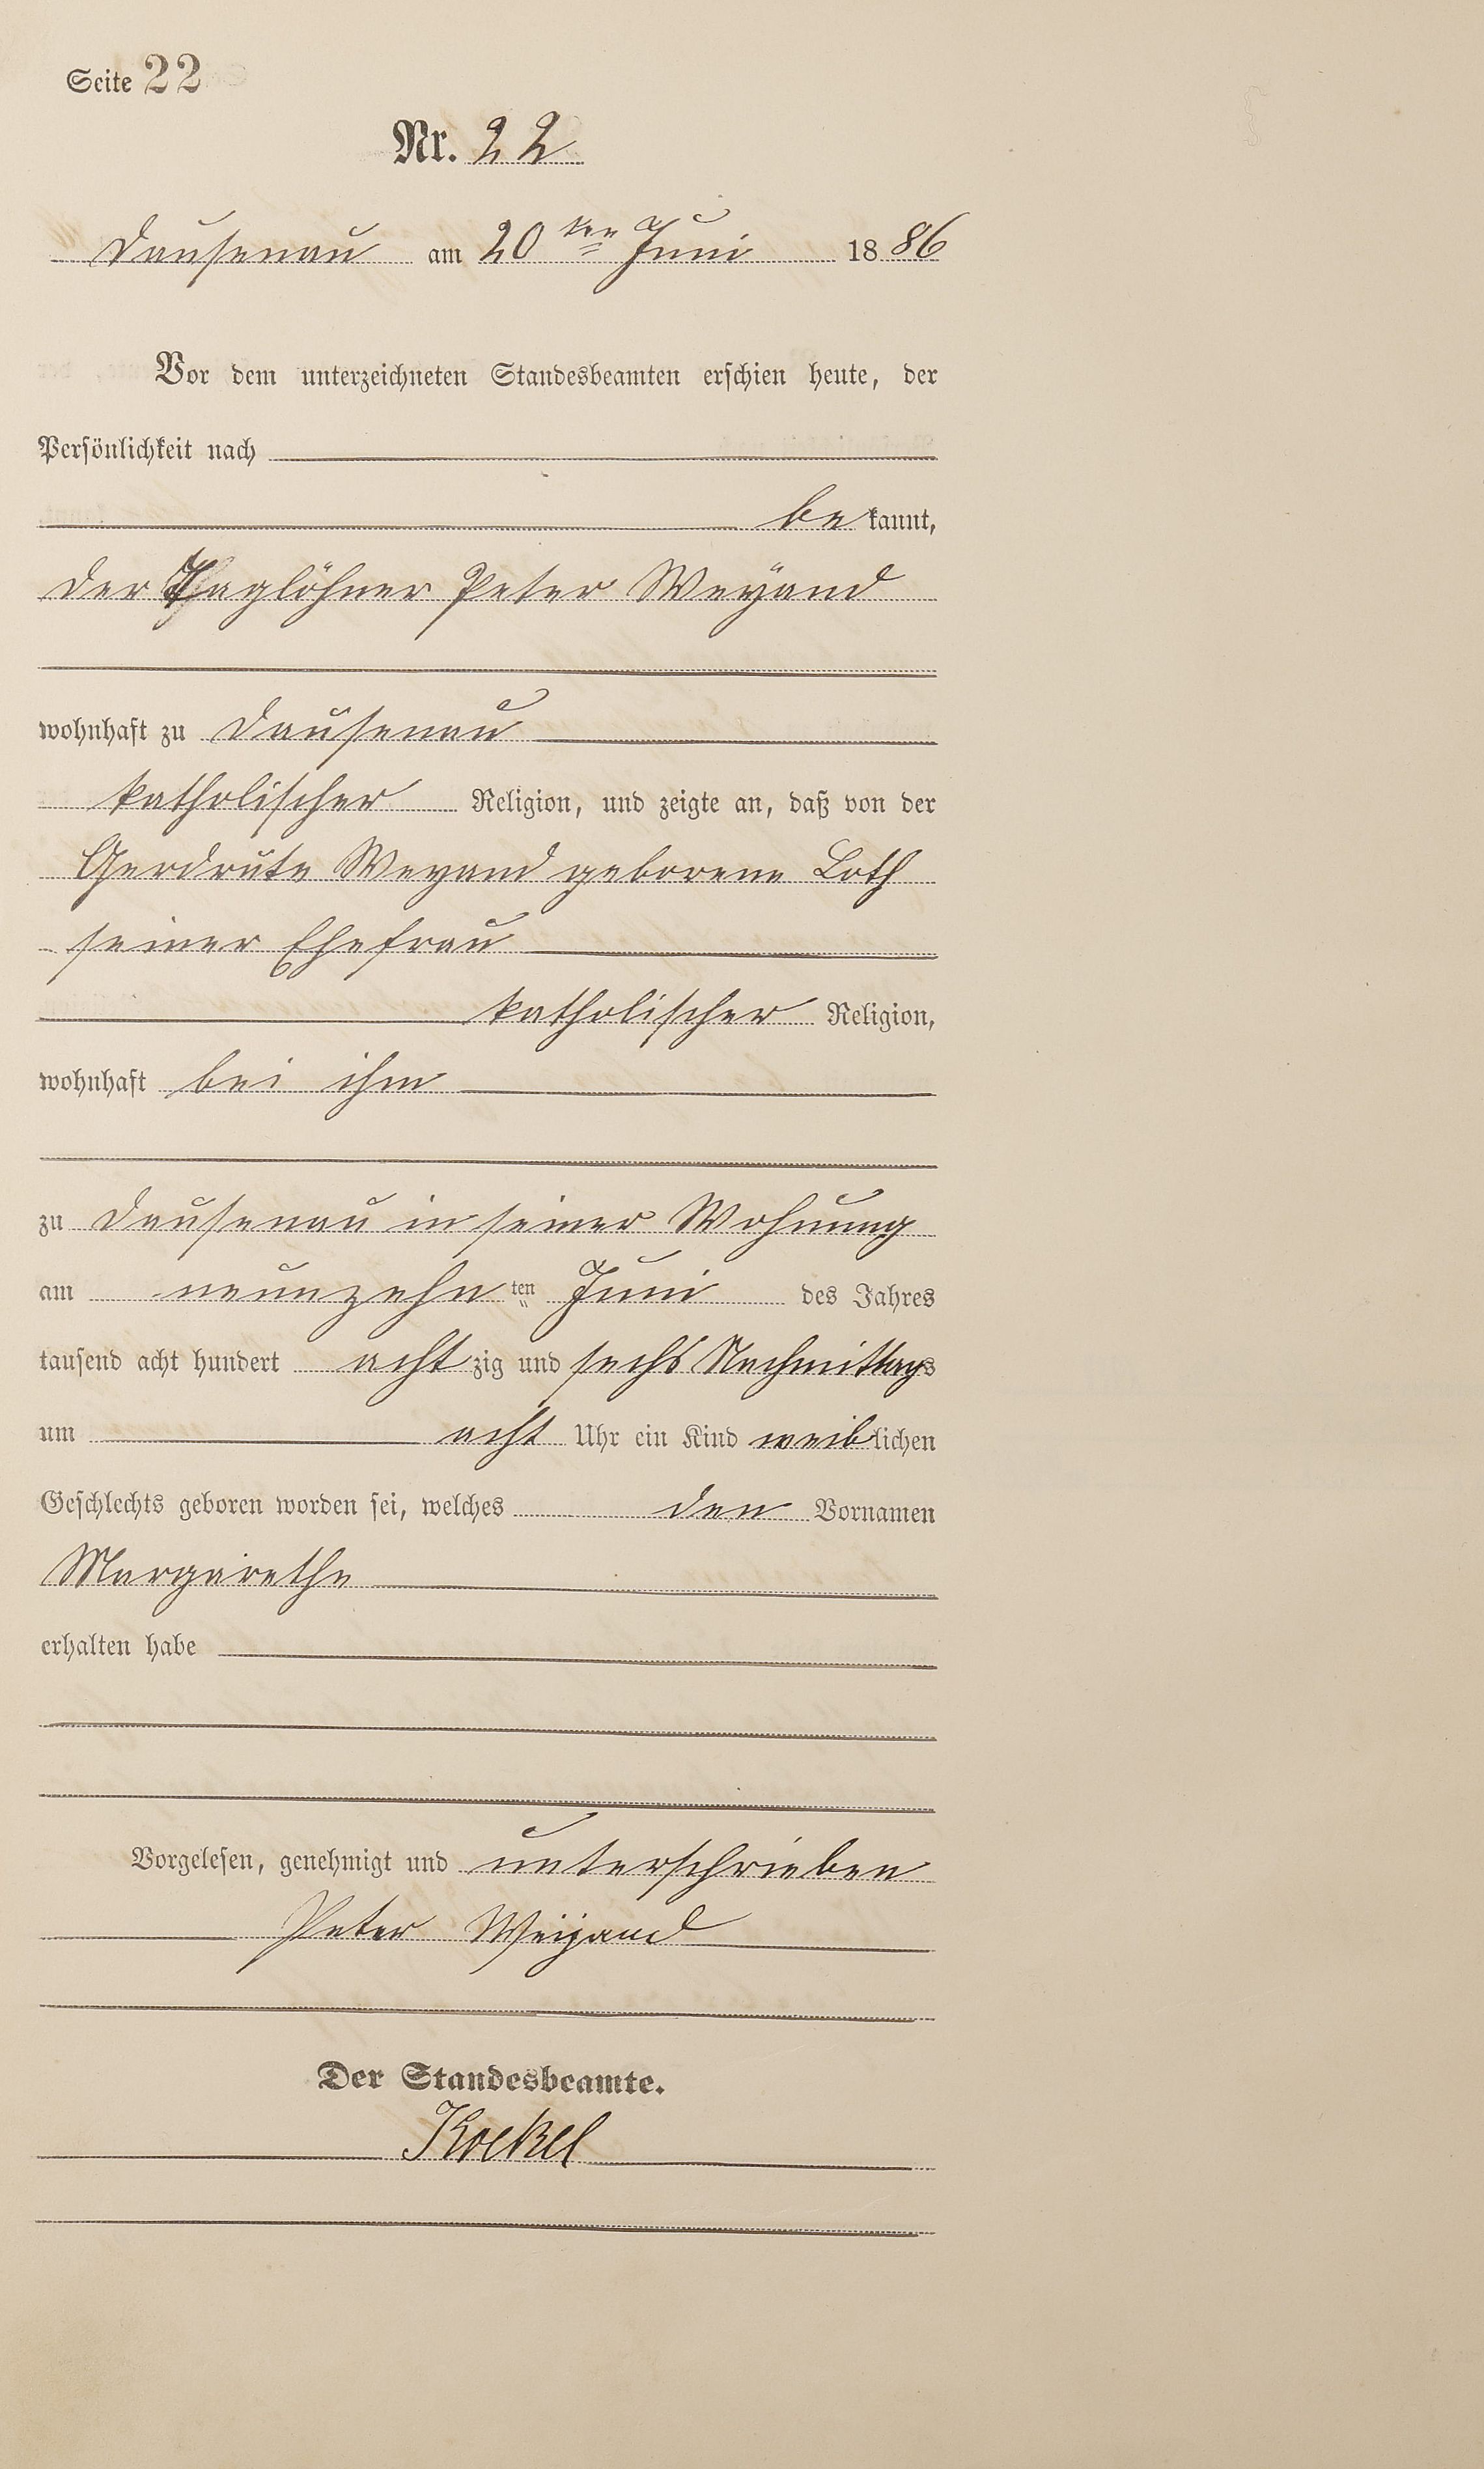 Seite 22
Nr. 22
Dausenau am 20ten Juni 1886
Vor dem unterzeichneten Standesbeamten erschien heute, der
Persönlichkeit nach
bekannt,
der Taglöhner Peter Weyand
wohnhaft zu Dausenau
katholischer Religion, und zeigte an, daß von der
Gerdrute Weyand geborene Loth
seiner Ehefrau
katholischer Religion,
wohnhaft bei ihm
zu Dausenau in seiner Wohnung
am neunzehnten Juni des Jahres
tausend acht hundert achtzig und sechs Nachmittags
um acht Uhr ein Kind weiblichen
Geschlechts geboren worden sei, welches den Vornamen
Margarethe
erhalten habe
Vorgelesen, genehmigt und unterschrieben
Peter Weijand
Der Standesbeamte.